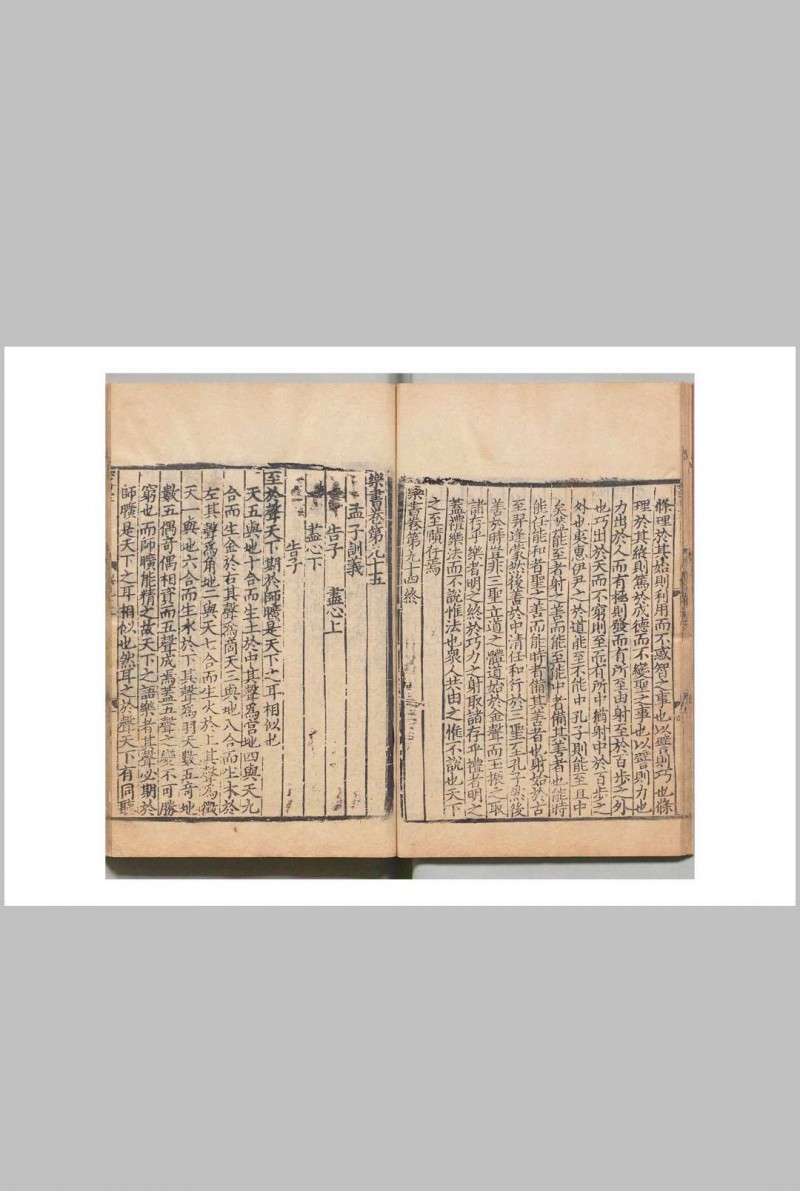 條理於其始則利用而不惑智之事也以譬則巧也條
理於其終則篤於成德而不變聖之事也以譬則力也
力出於人而有極則發而有所至由射至於百步之外
也巧出於天而不窮則至亦有所中猶射中於百步之
外也夷惠伊尹之於道能至不能中孔子則能至且中
矣蓋能至者射之善而能至能中者備其善者也能時
能任能和者聖之善而能時者備其善者也射始於古
至羿逢蒙然後善於中清任和行於三聖至孔子然後
善於時豈非三聖立道之體道始於金聲而玉振之取
諸存乎樂者明之終於巧力之射取諸存乎禮者明之
蓋禮樂法而不說惟法也眾人共由之惟不說也天下
之至賾存焉
樂書卷第九十四終
樂書卷第九十五
孟子訓義
告子 盡心上
盡心下
告子
至於聲天下期於師曠是天下之耳相似也
天五與地十合而生土於中其聲為宮地四與天九
合而生金於右其聲為商天三與地八合而生木於
左其聲為角地二與天七合而生火於上其聲為徵
天一與地六合而生水於下其聲為羽天數五奇地
數五偶奇偶相資而五聲成焉蓋五聲之變不可勝
窮也而師曠能精之故天下之語樂者其聲必期於
師曠是天下之耳相似也然耳之於聲天下有同聽